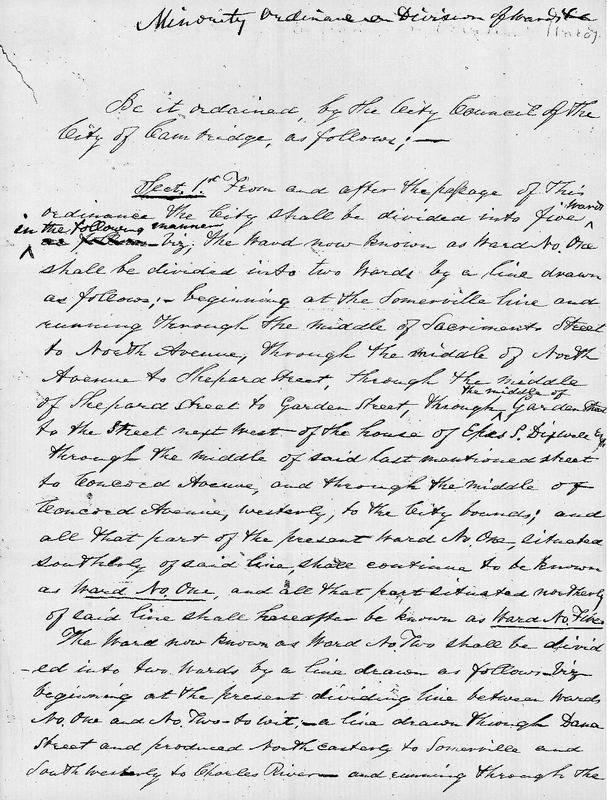 Minority Ordinance on Division of Wards &c
Be it ordained, by the City Council of the
City of Cambridge, as follows; —
Sect. 1st From and after the passage of this
ordinance the City shall be divided into five wards
in the following manner
as follows viz; the Ward now known as Ward No. One
shall be divided into two Wards by a line drawn
as follows; - beginning at the Somerville line and
running through the middle of Sacriments Street
to North Avenue, through the middle of North
Avenue to Shepard Street, through the middle
of Shepard Street to Garden Street, through the middle of Garden Street
to the Street next West of the house of Epes S. Dixwell Esq
through the middle of said last mentioned street
to Concord Avenue, and through the middle of
Concord Avenue, westerly, to the City bounds; and
all that part of the present Ward No. One, situated
southerly of said line, shall continue to be known
as Ward No. One, and all that part situated northerly
of said line shall hereafter be known as Ward No. Five.
The Ward now known as Ward No Two shall be divid
-ed into two Wards by a line drawn as follows viz
beginning at the present dividing line between Wards
No. One and No. Two - to wit; - a line drawn through Dana
Street and produced North easterly to Somerville and
South westerly to Charles River — and running through the